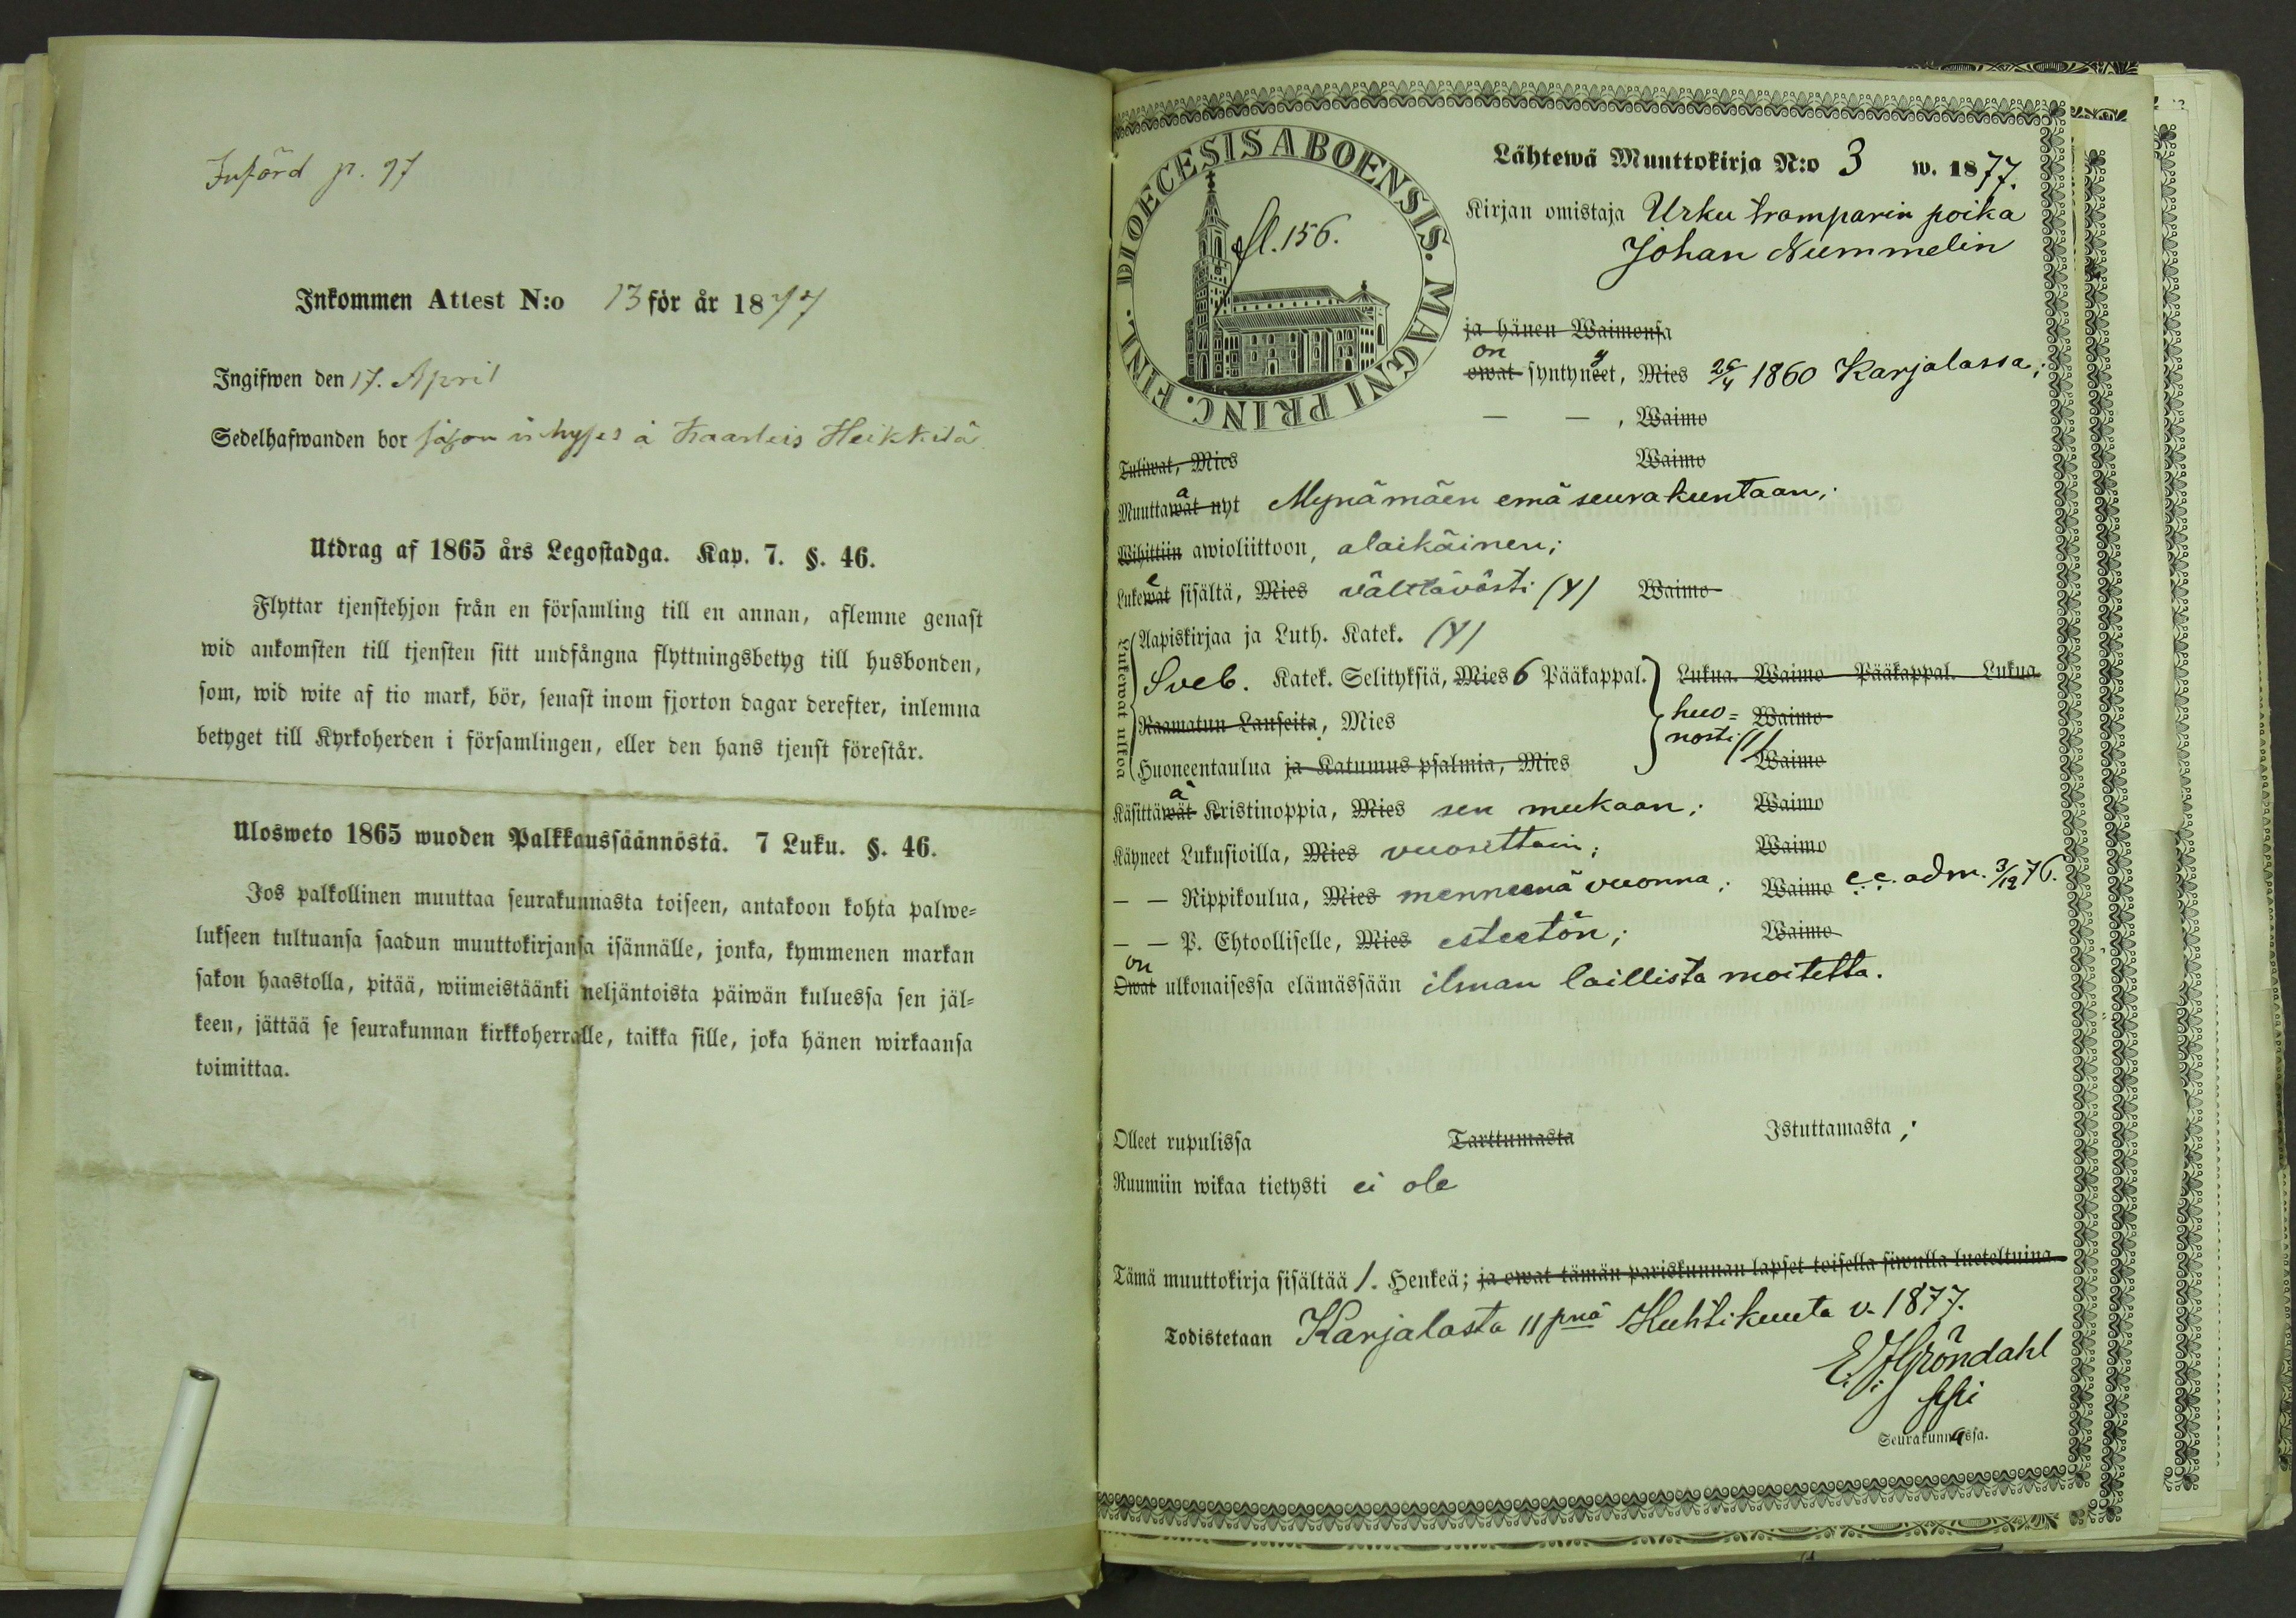 Införd p. 97
Inkommen Attest N:o 13 för år 1877
Ingifwen den 17. April
Sedelhafwanden bor såson inhyses å Kaarleis Heikkilä
Utdrag af 1865 års Legostadga. Kap. 7. §. 46.
Flyttar tjenstehjon från en församling till en annan, aflemne genast
wid ankomsten till tjensten sitt undfångna flyttningsbetyg till husbonden,
som, wid wite af tio mark, bör, senast inom fjorton dagar derefter, inlemna
betyget till Kyrkoherden i församlingen, eller den hans tjenst förestår.
Ulosweto 1865 wuoden Palkkaussäännöstä. 7 Luku. §. 46.
Jos palkollinen muuttaa seurakunnasta toiseen, antakoon kohta palwe=
lukseen tultuansa saadun muuttokirjansa isännälle, jonka, kymmenen markan
sakon haastolla, pitää, wiimeistäänki neljäntoista päiwän kuluessa sen jäl=
keen, jättää se seurakunnan kirkkoherralle, taikka sille, joka hänen wirkaansa
toimittaa.
DIOECESIS ABOENSIS. MAGNI PRINC. FINL.
fl. 156.
Lähtewä Muuttokirja N:o 3 w. 1877.
Kirjan omistaja Urku tramparin poika
Johan Nummelin
ja hänen Waimonsa
on
owat syntyneet, Mies 26/4 1860 Karjalassa;
— — , Waimo
Tuliwat, Mies Waimo
Muuttawat nyt Mynämäen emäseurakuntaan;
Wihittiin awioliittoon, alaikäinen;
Lukewat sisältä, Mies välttävästi (Y) Waimo
Lukewat ulkoa
Aapiskirjaa ja Luth. Katek. (Y)
Sveb. Katek. Selityksiä, Mies 6 Pääkappal. Lukua. Waimo Pääkappal. Lukua.
Raamatun Lauseita, Mies huo= Waimo
nosti
Huoneentaulua ja Katumus psalmia, Mies Waimo
Käsittäwät Kristinoppia, Mies sen mukaan; Waimo
Käyneet Lukusioilla, Mies vuosittain; Waimo
— — Rippikoulua, Mies mennenä vuonna; Waimo c. c. adm. 3/12 76.
— — P. Ehtoolliselle, Mies esteetön; Waimo
on
Owat ulkonaisessa elämässään ilman laillista moitetta.
Olleet rupulissa Tarttumasta Istuttamasta;
Ruumiin wikaa tietysti ei ole
Tämä muuttokirja sisältää 1. Henkeä; ja owat tämän pariskunnan lapset toisella siwulla lueteltuina
Todistetaan Karjalasta 11 pnä Huhtikuuta v. 1877.
E. J. Gröndahl
Seurakunnassa.